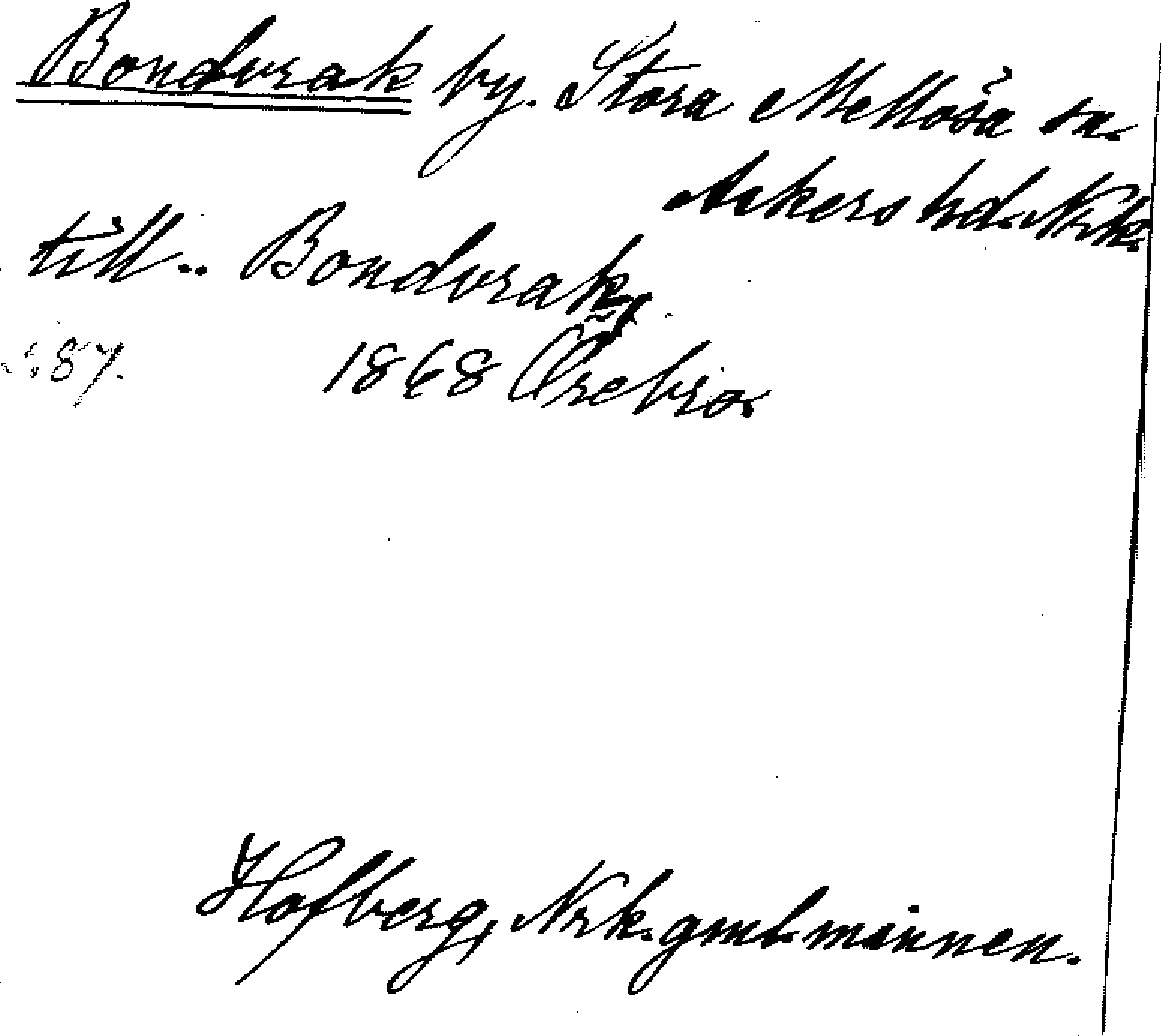 Bondvrak by. Stora Mellösa sn.
Askers hd. Nrk.
till.. Bondvrak,
s. 87. 1868 Örebro.
Hofberg, Nrk. gml. minnen.